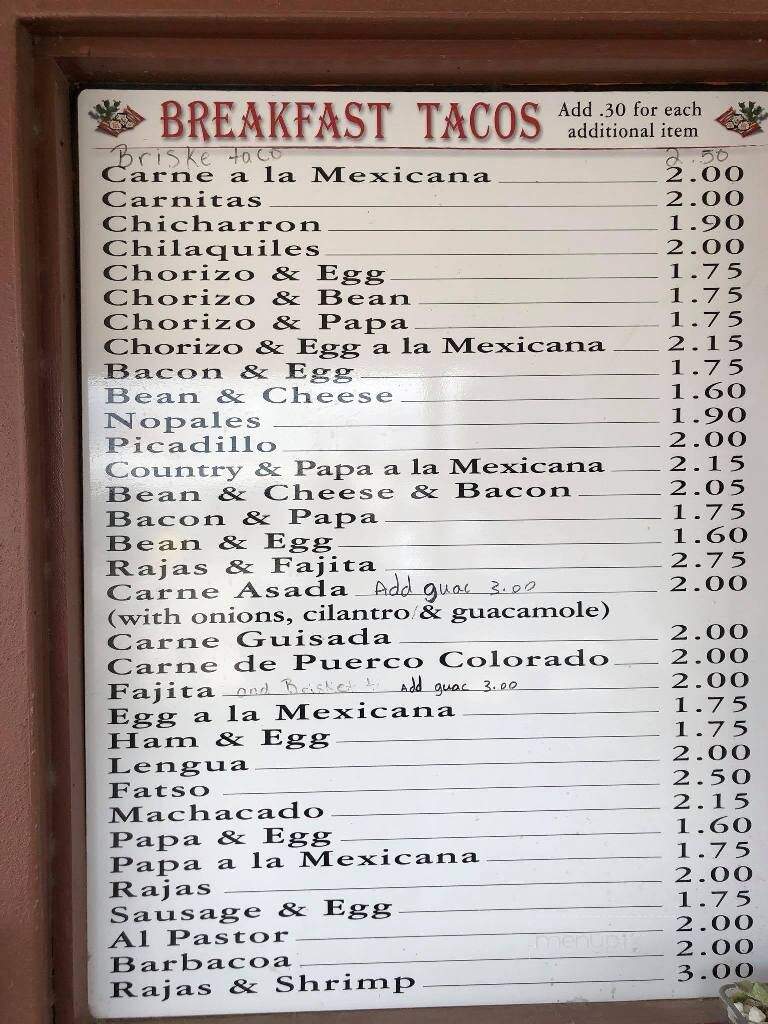 BREAKFAST TACOS Add .30 for each additional item
Briske taco 2.50
Carne a la Mexicana 2.00
Carnitas 2.00
Chicharron 1.90
Chilaquiles 2.00
Chorizo & Egg 1.75
Chorizo & Bean 1.75
Chorizo & Papa 1.75
Chorizo & Egg a la Mexicana 2.15
Bacon & Egg 1.75
Bean & Cheese 1.60
Nopales 1.90
Picadillo 2.00
Country & Papa a la Mexicana 2.15
Bean & Cheese & Bacon 2.05
Bacon & Papa 1.75
Bean & Egg 1.60
Rajas & Fajita 2.75
Carne Asada Add guac 3.00 2.00
(with onions, cilantro & guacamole)
Carne Guisada 2.00
Carne de Puerco Colorado 2.00
Fajita and Brisket Add guac 3.00 2.00
Egg a la Mexicana 1.75
Ham & Egg 1.75
Lengua 2.00
Fatso 2.50
Machacado 2.15
Papa & Egg 1.60
Papa a la Mexicana 1.75
Rajas 2.00
Sausage & Egg 1.75
Al Pastor 2.00
Barbacoa 2.00
Rajas & Shrimp 3.00